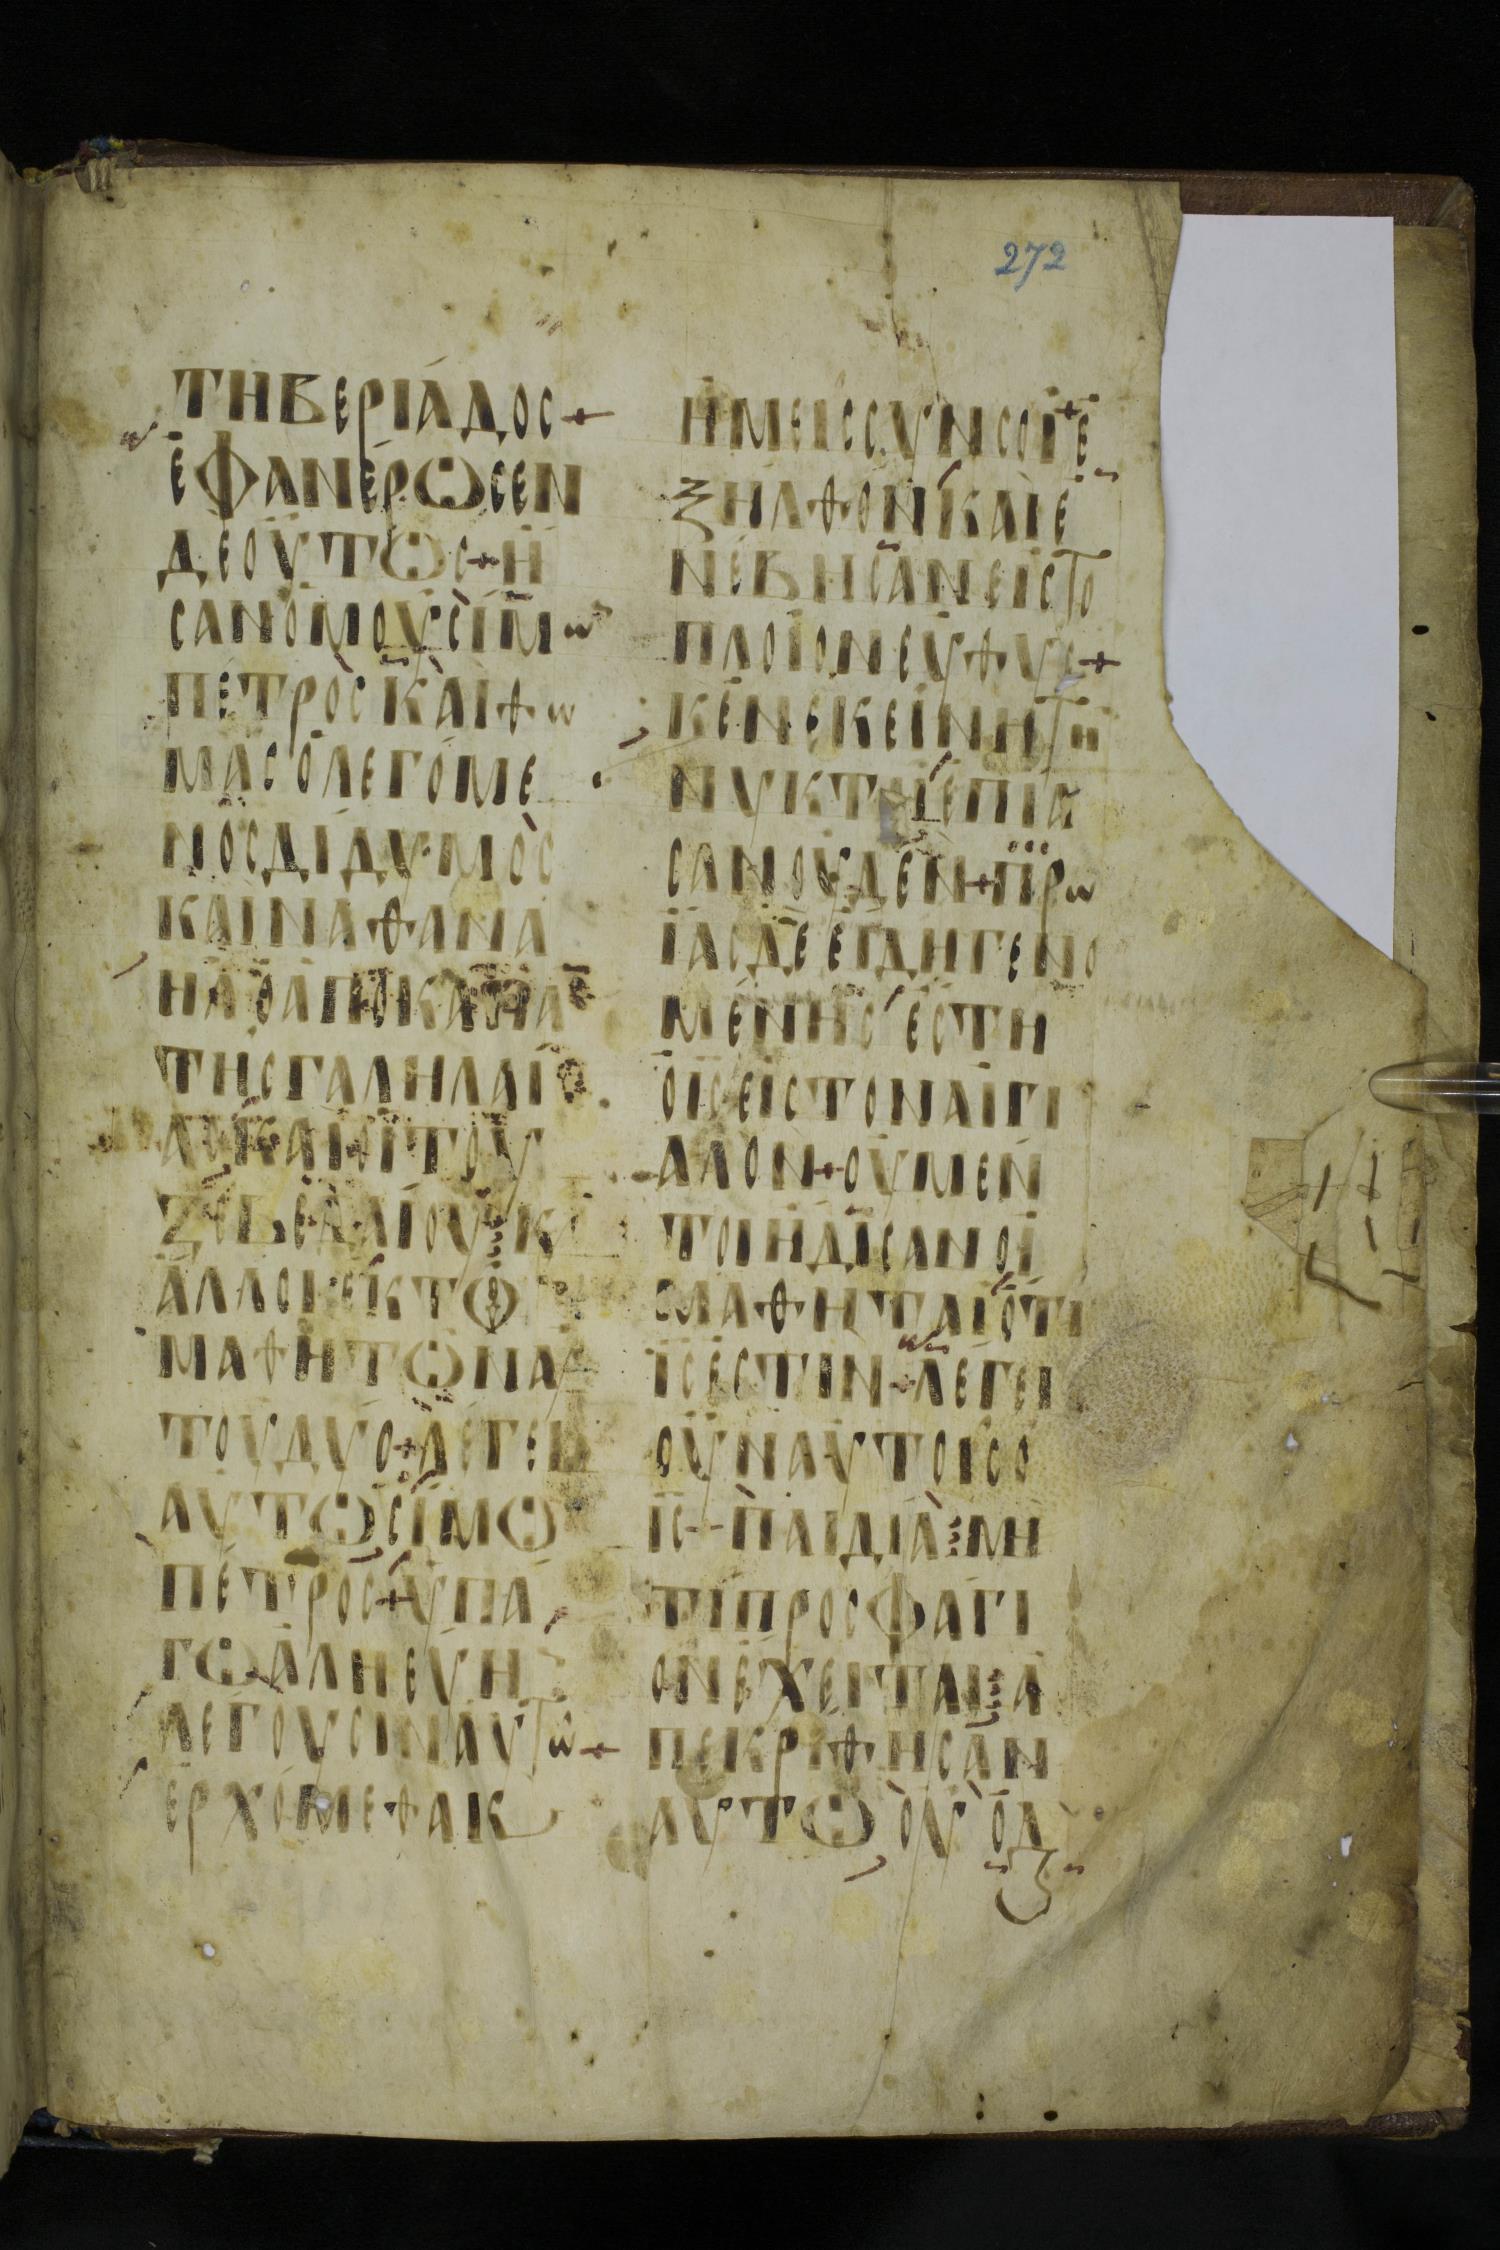 272
ΤΗΒΕΡΙΑΔΟС+
ΕΦΑΝΕΡΩСΕΝ
ΔΕΟΥΤΩС+Η
СΑΝΟΜΟΥСΙΜω
ΠΕΤΡΟСΚΑΙΘω
ΜΑСΟΛΕΓΟΜΕ
ΝΟСΔΙΔΥΜΟС
ΚΑΙΝΑΘΑΝΑ
ΗΛΟΑΠΟΚΑΝΑ
ΤΗСΓΑΛΗΛΑΙ
ΑСΚΑΙΟΙΤΟΥ
ΖΕΒΕΔΑΙΟΥ⁝Κ
ΑΛΛΟΙΕΚΤΩ
ΜΑΘΗΤΩΝΑΥ
ΤΟΥΔΥΟ+ΛΕΓΕΙ
ΑΥΤΩСΙΜΩ
ΠΕΤΡΟС+ΥΠΑ
ΓΩΑΛΗΕΥΗ
ΛΕΓΟΥСΙΝΑΥΤω+
ΕΡΧΟΜΕΘΑΚ
ΗΜΕΙССΥΝСΟΙ+Ε
ΞΗΛΘΟΝΚΑΙΕ
ΝΕΒΗСΑΝΕΙСΤΟ
ΠΛΟΙΟΝΕΥΘΥС+
ΚΕΝΕΚΕΙΝΗΤΗ
ΝΥΚΤΗΕΠΙΑ
СΑΝΟΥΔΕΝ+ΠΡω
ΙΑСΔΕΕΙΔΗΓΕΝΟ
ΜΕΝΗСΕСΤΗ
ΟΙСΕΙСΤΟΝΑΙΓΙ
ΑΛΟΝ+ΟΥΜΕΝ
ΤΟΙΗΔΙСΑΝΟΙ
ΜΑΘΗΤΑΙΟΤΙ
ΙСΕСΤΙΝ+ΛΕΓΕΙ
ΟΥΝΑΥΤΟΙСΟ
ΙС+ΠΑΙΔΙΑ⁝ΜΗ
ΤΙΠΡΟСΦΑΓΙ
ΟΝΕΧΕΙΤΑΙ⁝Α
ΠΕΚΡΙΘΗСΑΝ
ΑΥΤΩΟΥΟΔ